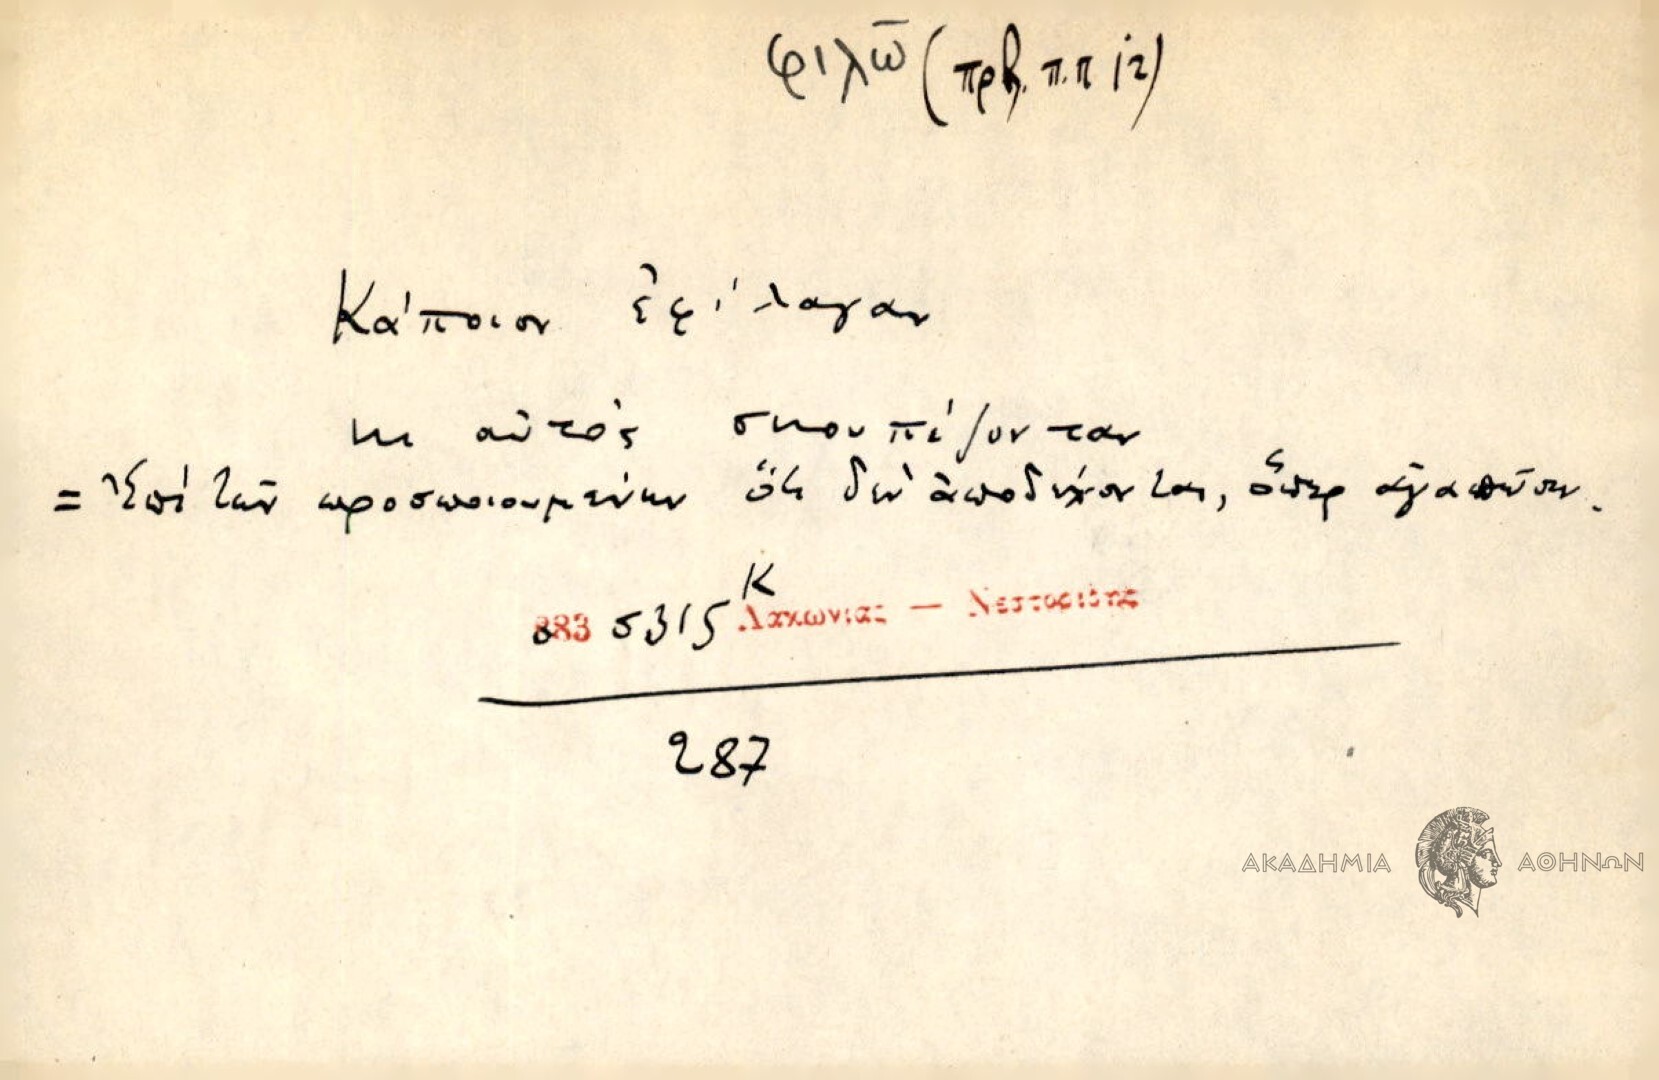 φιλῶ (πρβ. π.π 12)
Κάποιον ἐφίλαγαν
κι αὐτὸς σκουπίζονταν
= Ἐπὶ τῶν προσποιουμένων ὅτι δὲν ἀποδέχονται, ὅπερ ἀγαπῶσιν.
883 5315 Κ Λακωνίας — Νεστορίδης
287
ΑΚΑΔΗΜΙΑ ΑΘΗΝΩΝ